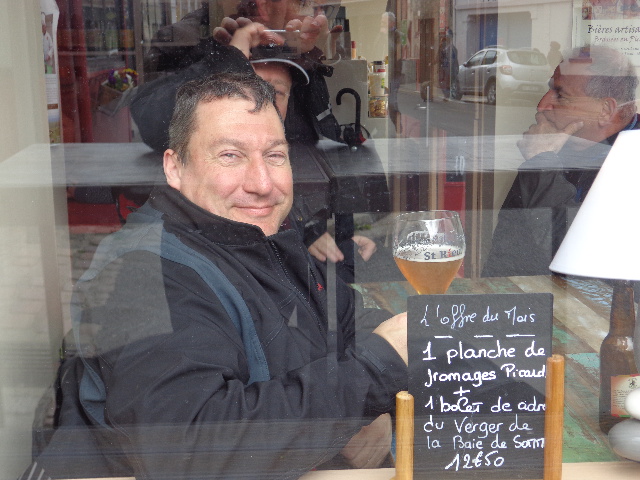 Bières artisa
St Rieul
L'offre du Mois
1 planche de
fromages Picard
+
1 bolée de cidre
du Verger de
la Baie de Somm
12€50